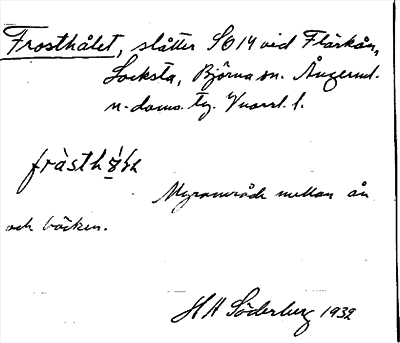 Frosthålet, slåtter SO 14 vid Flärkån,
Locksta, Björna sn. Ångerml.
n. doms. tg. Vnorrl. l.
fràsth
Myrområde mellan ån
och bäcken.
H H Söderberg 1932